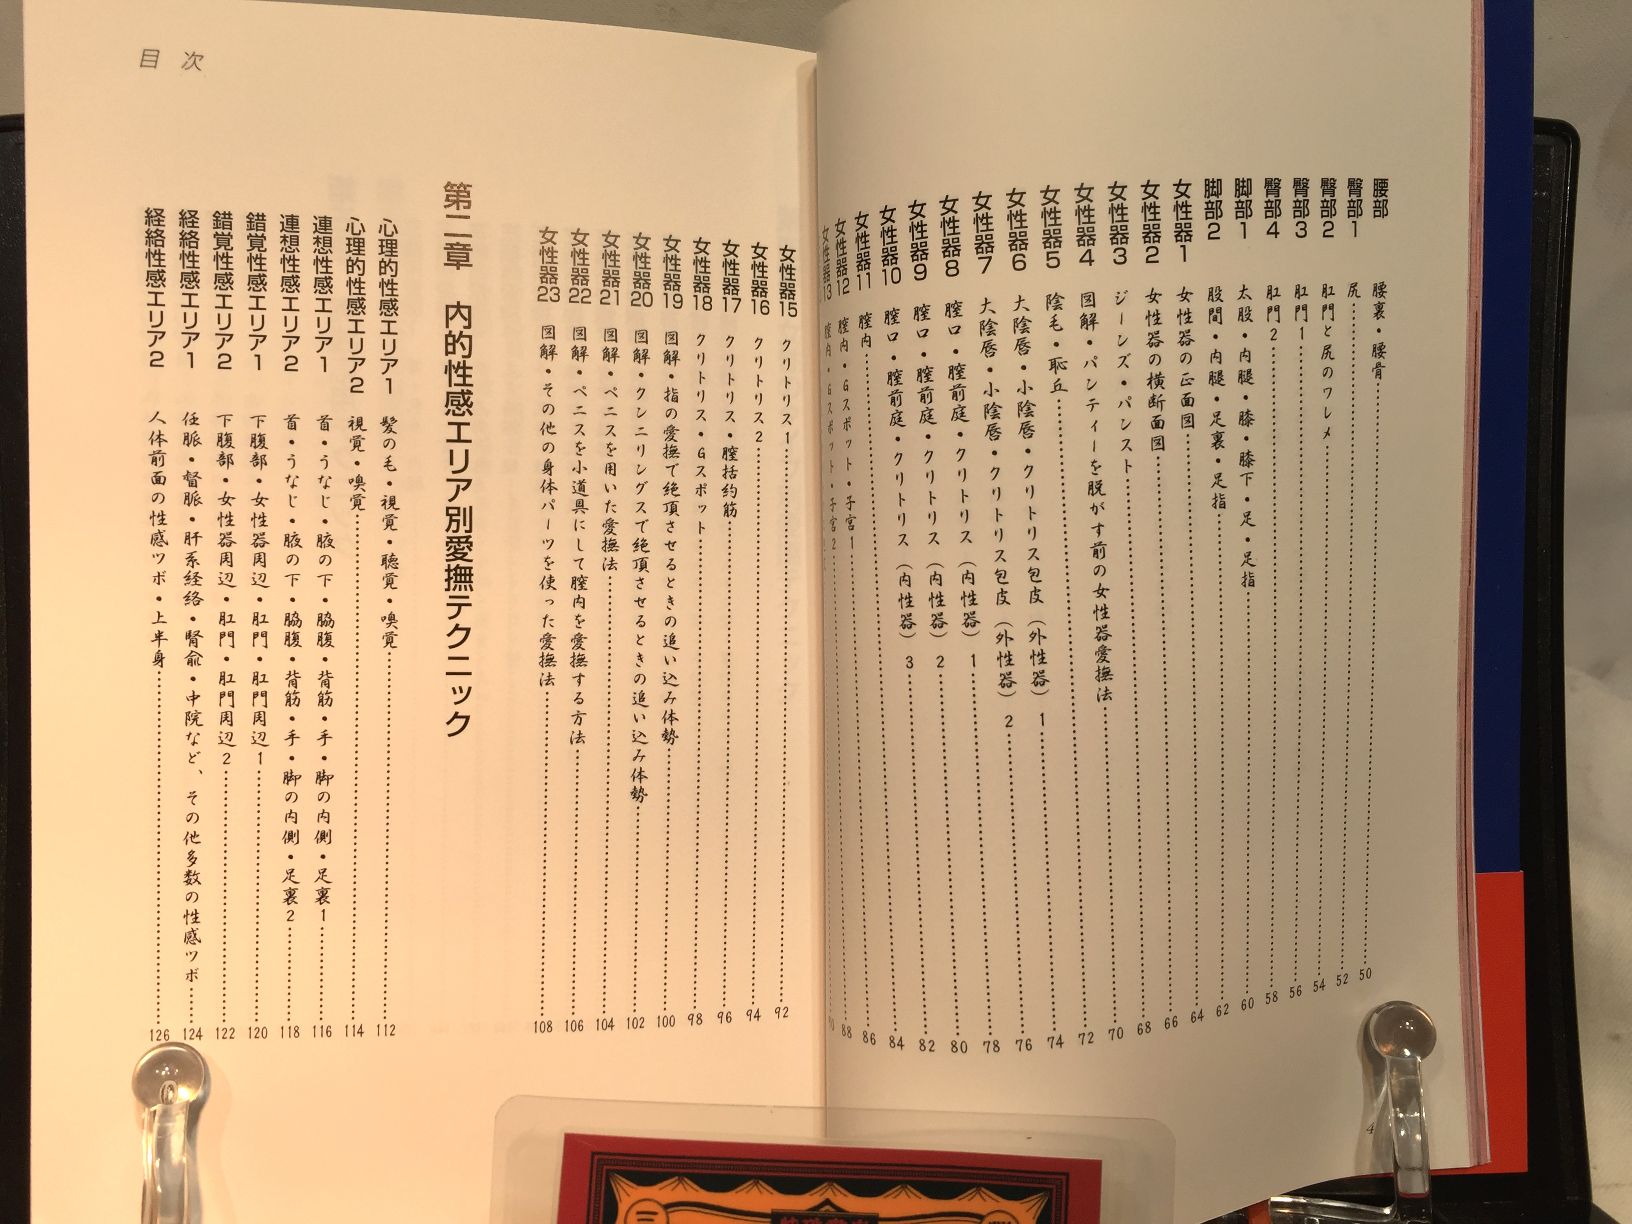 腰部 腰裏・腰骨 50
臀部1 尻 52
臀部2 肛門と尻のワレメ 54
臀部3 肛門1 56
臀部4 肛門2 58
脚部1 太股・内腿・膝・膝下・足・足指 60
脚部2 股間・内腿・足裏・足指 62
女性器1 女性器の正面図 64
女性器2 女性器の横断面図 66
女性器3 ジーンズ・パンスト 68
女性器4 図解・パンティーを脱がす前の女性器愛撫法 70
女性器5 陰毛・恥丘 72
女性器6 大陰唇・小陰唇・クリトリス包皮(外性器)1 74
女性器7 大陰唇・小陰唇・クリトリス包皮(外性器)2 76
女性器8 膣口・膣前庭・クリトリス(内性器)1 78
女性器9 膣口・膣前庭・クリトリス(内性器)2 80
女性器10 膣口・膣前庭・クリトリス(内性器)3 82
女性器11 膣内 84
女性器12 膣内・Gスポット・子宮1 86
女性器13 膣内・Gスポット・子宮2 88
90
4
目次
女性器15 クリトリス1 92
女性器16 クリトリス2 94
女性器17 クリトリス・膣括約筋 96
女性器18 クリトリス・Gスポット 98
女性器19 図解・指の愛撫で絶頂させるときの追い込み体勢 100
女性器20 図解・クンニリングスで絶頂させるときの追い込み体勢 102
女性器21 図解・ペニスを用いた愛撫法 104
女性器22 図解・ペニスを小道具にして膣内を愛撫する方法 106
女性器23 図解・その他の身体パーツを使った愛撫法 108
第二章 内的性感エリア別愛撫テクニック
心理的性感エリア1 髪の毛・視覚・聴覚・嗅覚 112
心理的性感エリア2 視覚・嗅覚 114
連想性感エリア1 首・うなじ・腋の下・脇腹・背筋・手・脚の内側・足裏1 116
連想性感エリア2 首・うなじ・腋の下・脇腹・背筋・手・脚の内側・足裏2 118
錯覚性感エリア1 下腹部・女性器周辺・肛門・肛門周辺1 120
錯覚性感エリア2 下腹部・女性器周辺・肛門・肛門周辺2 122
経絡性感エリア1 任脈・督脈・肝系経絡・腎兪・中院など、その他多数の性感ツボ 124
経絡性感エリア2 人体前面の性感ツボ・上半身 126